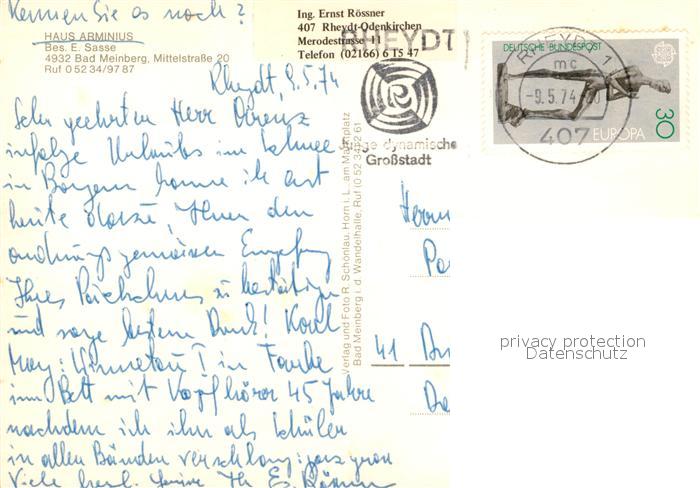 Kennen Sie es noch?
HAUS ARMINIUS
Bes. E. Sasse
4932 Bad Meinberg, Mittelstraße 20
Ruf 0 52 34/97 87
Ing. Ernst Rössner
407 Rheydt-Odenkirchen
Merodestrasse 11
Telefon (02166) 6 15 47
RHEYDT
Junge dynamische
Großstadt
DEUTSCHE BUNDESPOST
30
EUROPA
RHEYDT 1
mc
-9.5.74
407
Rheydt, 9.5.74
Sehr geehrter Herr
infolge Urlaubs im Schnee
in Bayern komme ich erst
heute dazu, Ihnen den
ordnungsgemässen Empfang
Ihres Päckchens zu bestätigen
und sage besten Dank! Karl
May: Winnetou I in Farbe
im Bett mit Kopfhörer 45 Jahre
nachdem ich ihn als Schüler
in allen Bänden verschlang: ganz gross
Viele herzl. Grüsse Ihr E. Rössner
Verlag und Foto R. Schönlau, Horn i. L. am Marktplatz
Bad Meinberg i. d. Wandelhalle, Ruf (0 52 34) 2 61
Herrn
41
privacy protection
Datenschutz